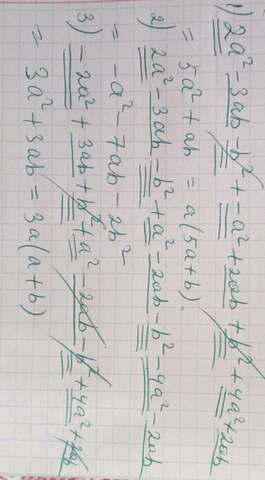 1) 2a² - 3ab - b² + -a² + 2ab + b² + 4a² + 2ab
= 5a² + ab = a(5a+b).
2) 2a² - 3ab - b² + a² - 2ab - b² - 4a² - 2ab
= -a² - 7ab - 2b²
3) -2a² + 3ab + b² + a² - 2ab - b² + 4a² + 2ab
= 3a² + 3ab = 3a(a+b)